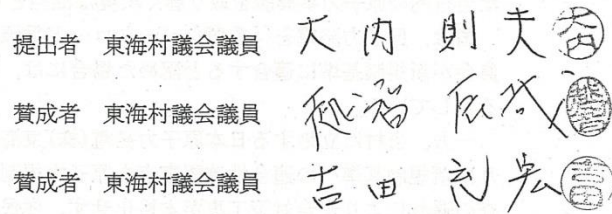 提出者 東海村議会議員 大内 則夫 大内
賛成者 東海村議会議員 越智 辰哉 越智
賛成者 東海村議会議員 吉田 充宏 吉田